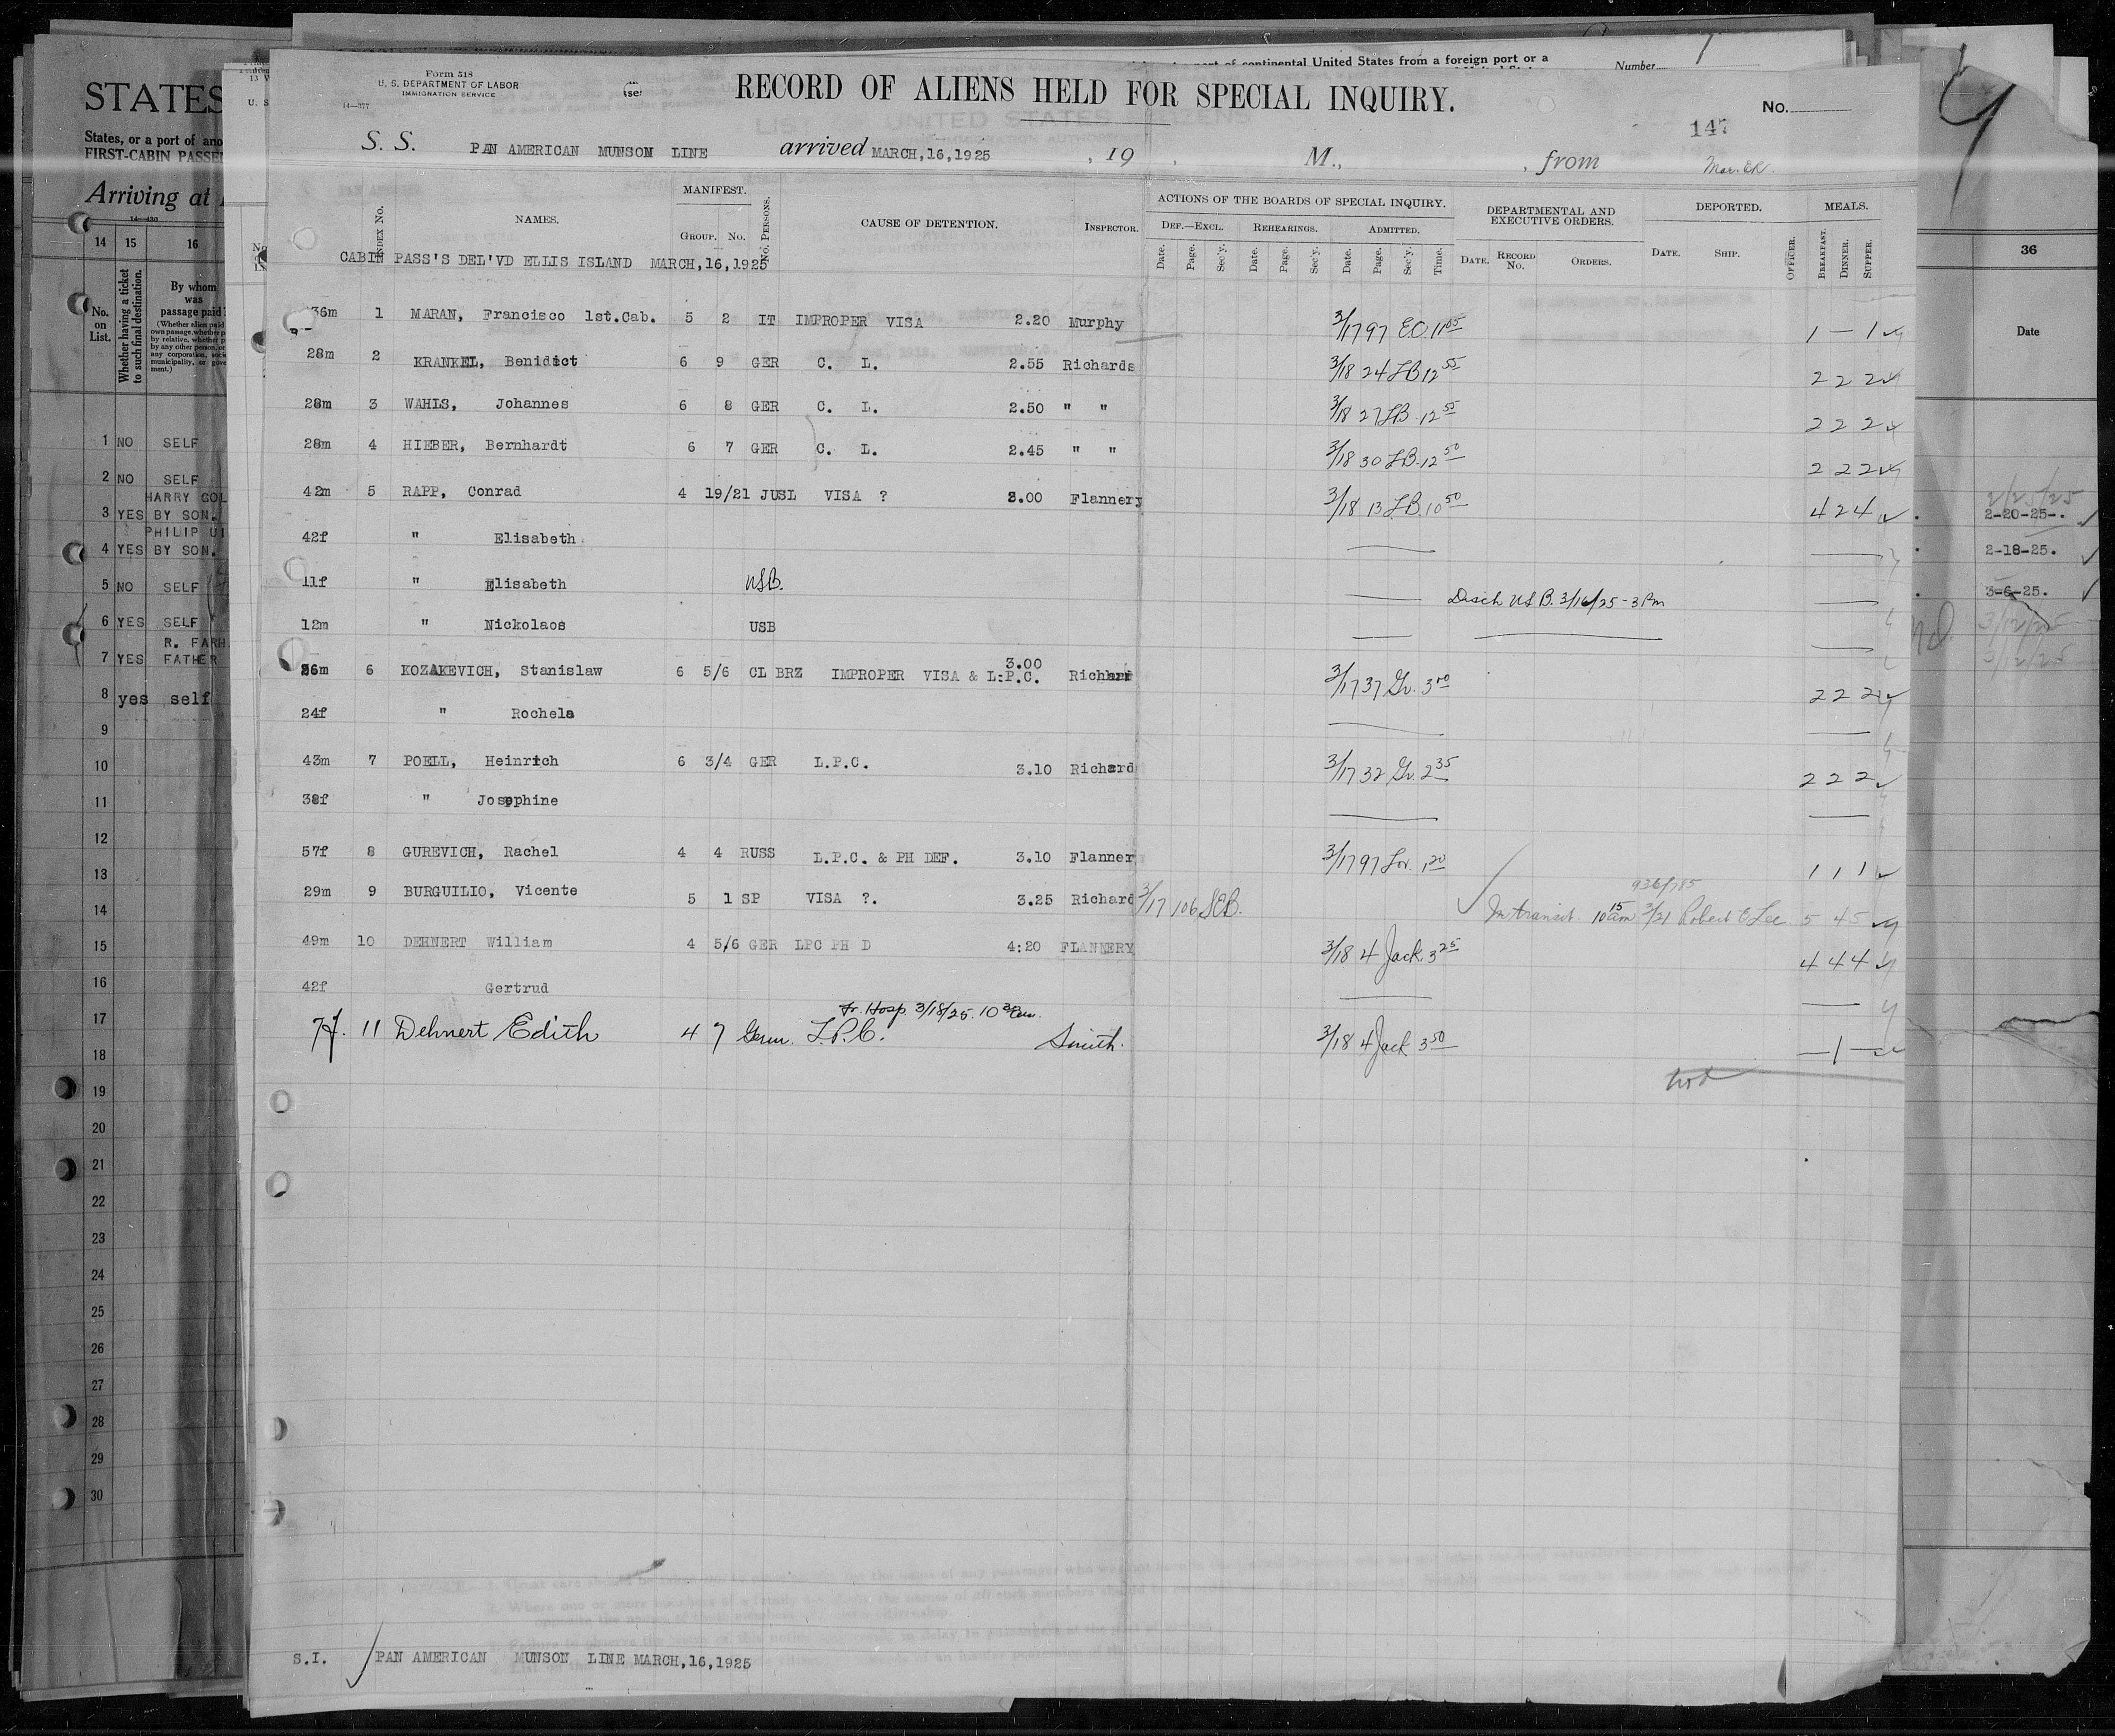 Form 518
U. S. DEPARTMENT OF LABOR
IMMIGRATION SERVICE
14—377
RECORD OF ALIENS HELD FOR SPECIAL INQUIRY.
No.
147
continental United States from a foreign port or a
Number
S. S. PAN AMERICAN MUNSON LINE arrived MARCH,16,1925 , 19 , M., , from
INDEX No. NAMES. MANIFEST. GROUP. No. No. PERSONS. CAUSE OF DETENTION. INSPECTOR.
ACTIONS OF THE BOARDS OF SPECIAL INQUIRY.
DEF.—EXCL. REHEARINGS. ADMITTED.
Date. Page. Sec'y. Date. Page. Sec'y. Date. Page. Sec'y. Time.
DEPARTMENTAL AND EXECUTIVE ORDERS.
DATE. RECORD No. ORDERS.
DEPORTED.
DATE. SHIP. OFFICER.
MEALS.
BREAKFAST. DINNER. SUPPER.
CABIN PASS'S DEL'VD ELLIS ISLAND MARCH,16,1925
36m 1 MARAN, Francisco 1st.Cab. 5 2 IT IMPROPER VISA 2.20 Murphy 3/17 97 E.O. 11 05 1 — 1
28m 2 KRANKEL, Benidict 6 9 GER C. L. 2.55 Richards 3/18 24 LB 12 55 2 2 2
28m 3 WAHLS, Johannes 6 8 GER C. L. 2.50 " " 3/18 27 LB 12 55 2 2 2
28m 4 HIEBER, Bernhardt 6 7 GER C. L. 2.45 " " 3/18 30 LB 12 50 2 2 2
42m 5 RAPP, Conrad 4 19/21 JUSL VISA ? 3.00 Flannery 3/18 13 LB. 10 50 4 2 4
42f " Elisabeth
11f " Elisabeth USB. Disch USB. 3/16/25 - 3 Pm
12m " Nickolaos USB
36m 6 KOZAKEVICH, Stanislaw 6 5/6 CL BRZ IMPROPER VISA & L.P.C. 3.00 Richard 3/17 37 Gr. 3 00 2 2 2
24f " Rochela
43m 7 POELL, Heinrich 6 3/4 GER L.P.C. 3.10 Richard 3/17 32 Gr. 2 35 2 2 2
38f " Josephine
57f 8 GUREVICH, Rachel 4 4 RUSS L.P.C. & PH DEF. 3.10 Flanner 3/17 97 1 20 1 1 1
29m 9 BURGUILIO, Vicente 5 1 SP VISA ?. 3.25 Richard 3/17 106 SEB. In transit 10 15 am 3/21 Robert E Lee 5 4 5
936/785
49m 10 DEHNERT William 4 5/6 GER LPC PH D 4:20 FLANNERY 3/18 4 Jack. 3 25 4 4 4
42f Gertrud
Fr. Hosp. 3/18/25. 10
7f. 11 Dehnert Edith 4 7 Germ. L.P.C. Smith. 3/18 4 Jack 3 50 — 1 —
S.I. PAN AMERICAN MUNSON LINE MARCH,16,1925
STATES
States, or a port of
FIRST-CABIN
Arriving at
14—430
14 15 16
No. on List.
Whether having a ticket to such final destination.
By whom was passage paid?
1 NO SELF
2 NO SELF
HARRY
3 YES BY SON.
PHILIP
4 YES BY SON.
5 NO SELF
6 YES SELF
R.
7 YES FATHER
8 yes self
9
10
11
12
13
14
15
16
17
18
19
20
21
22
23
24
25
26
27
28
29
30
36
Date
2/25/25
2-20-25-.
2-18-25.
3-6-25.
3/12/25
3/12/25